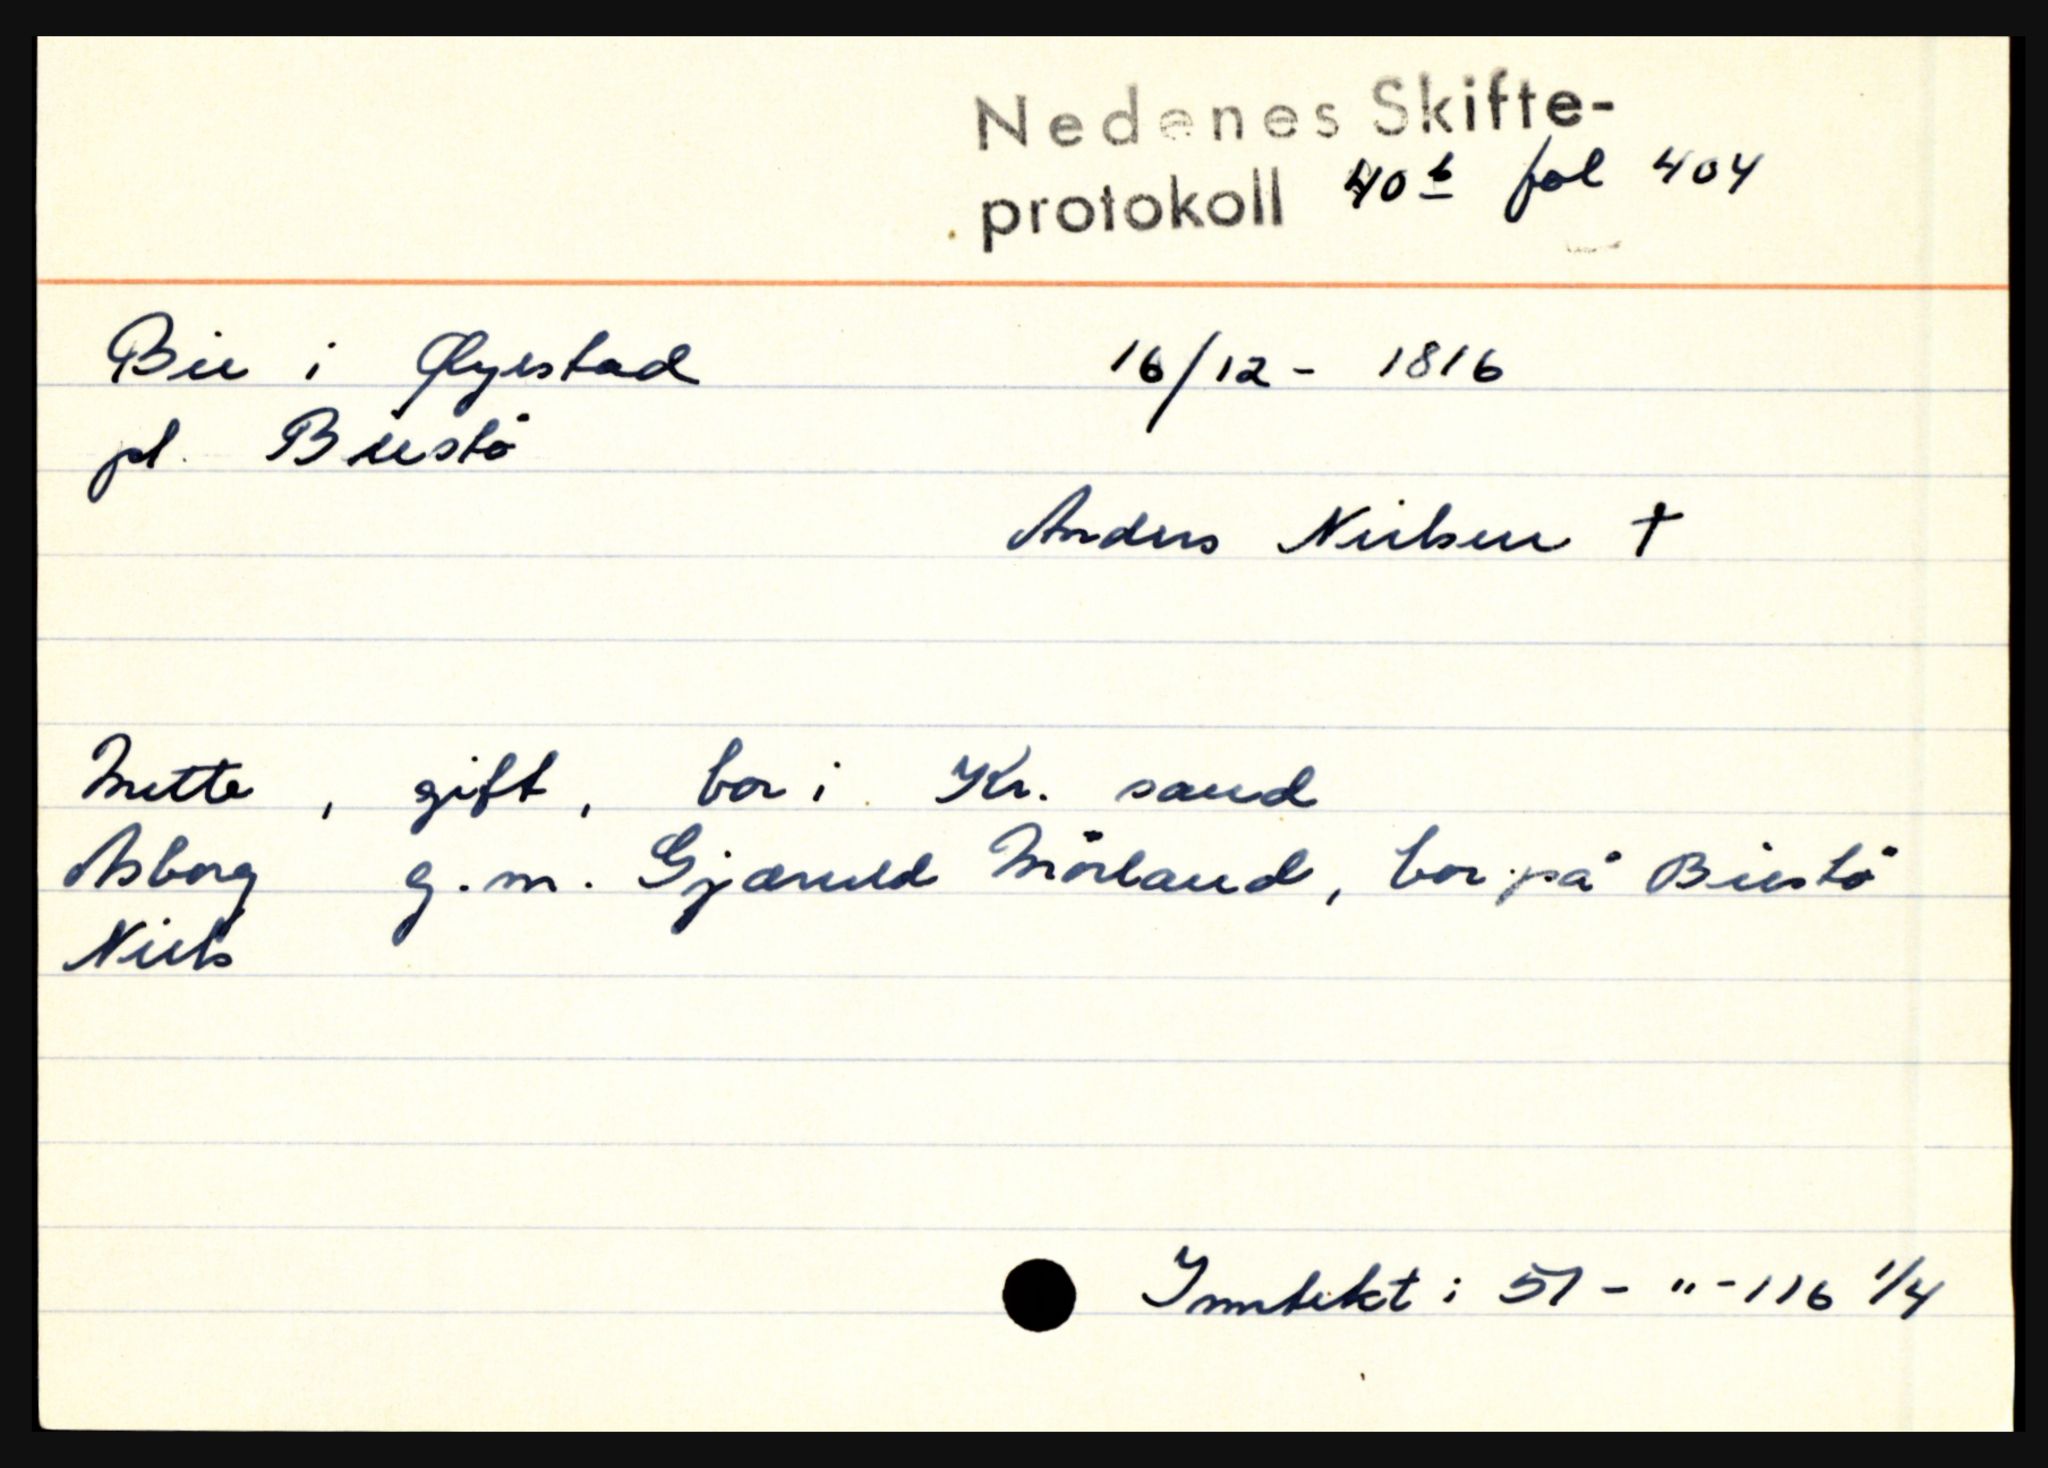 Nedenes Skifte-
protokoll 40 b fol 404
Bie i Øyestad 16/12 - 1816
pl. Biestö
Anders Nielsen †
Mette, gift, bor i Kr. sand
Asborg g.m. Gjæruld Mörland, bor på Biestö
Niels
Inntekt i 51 - " - 116 1/4